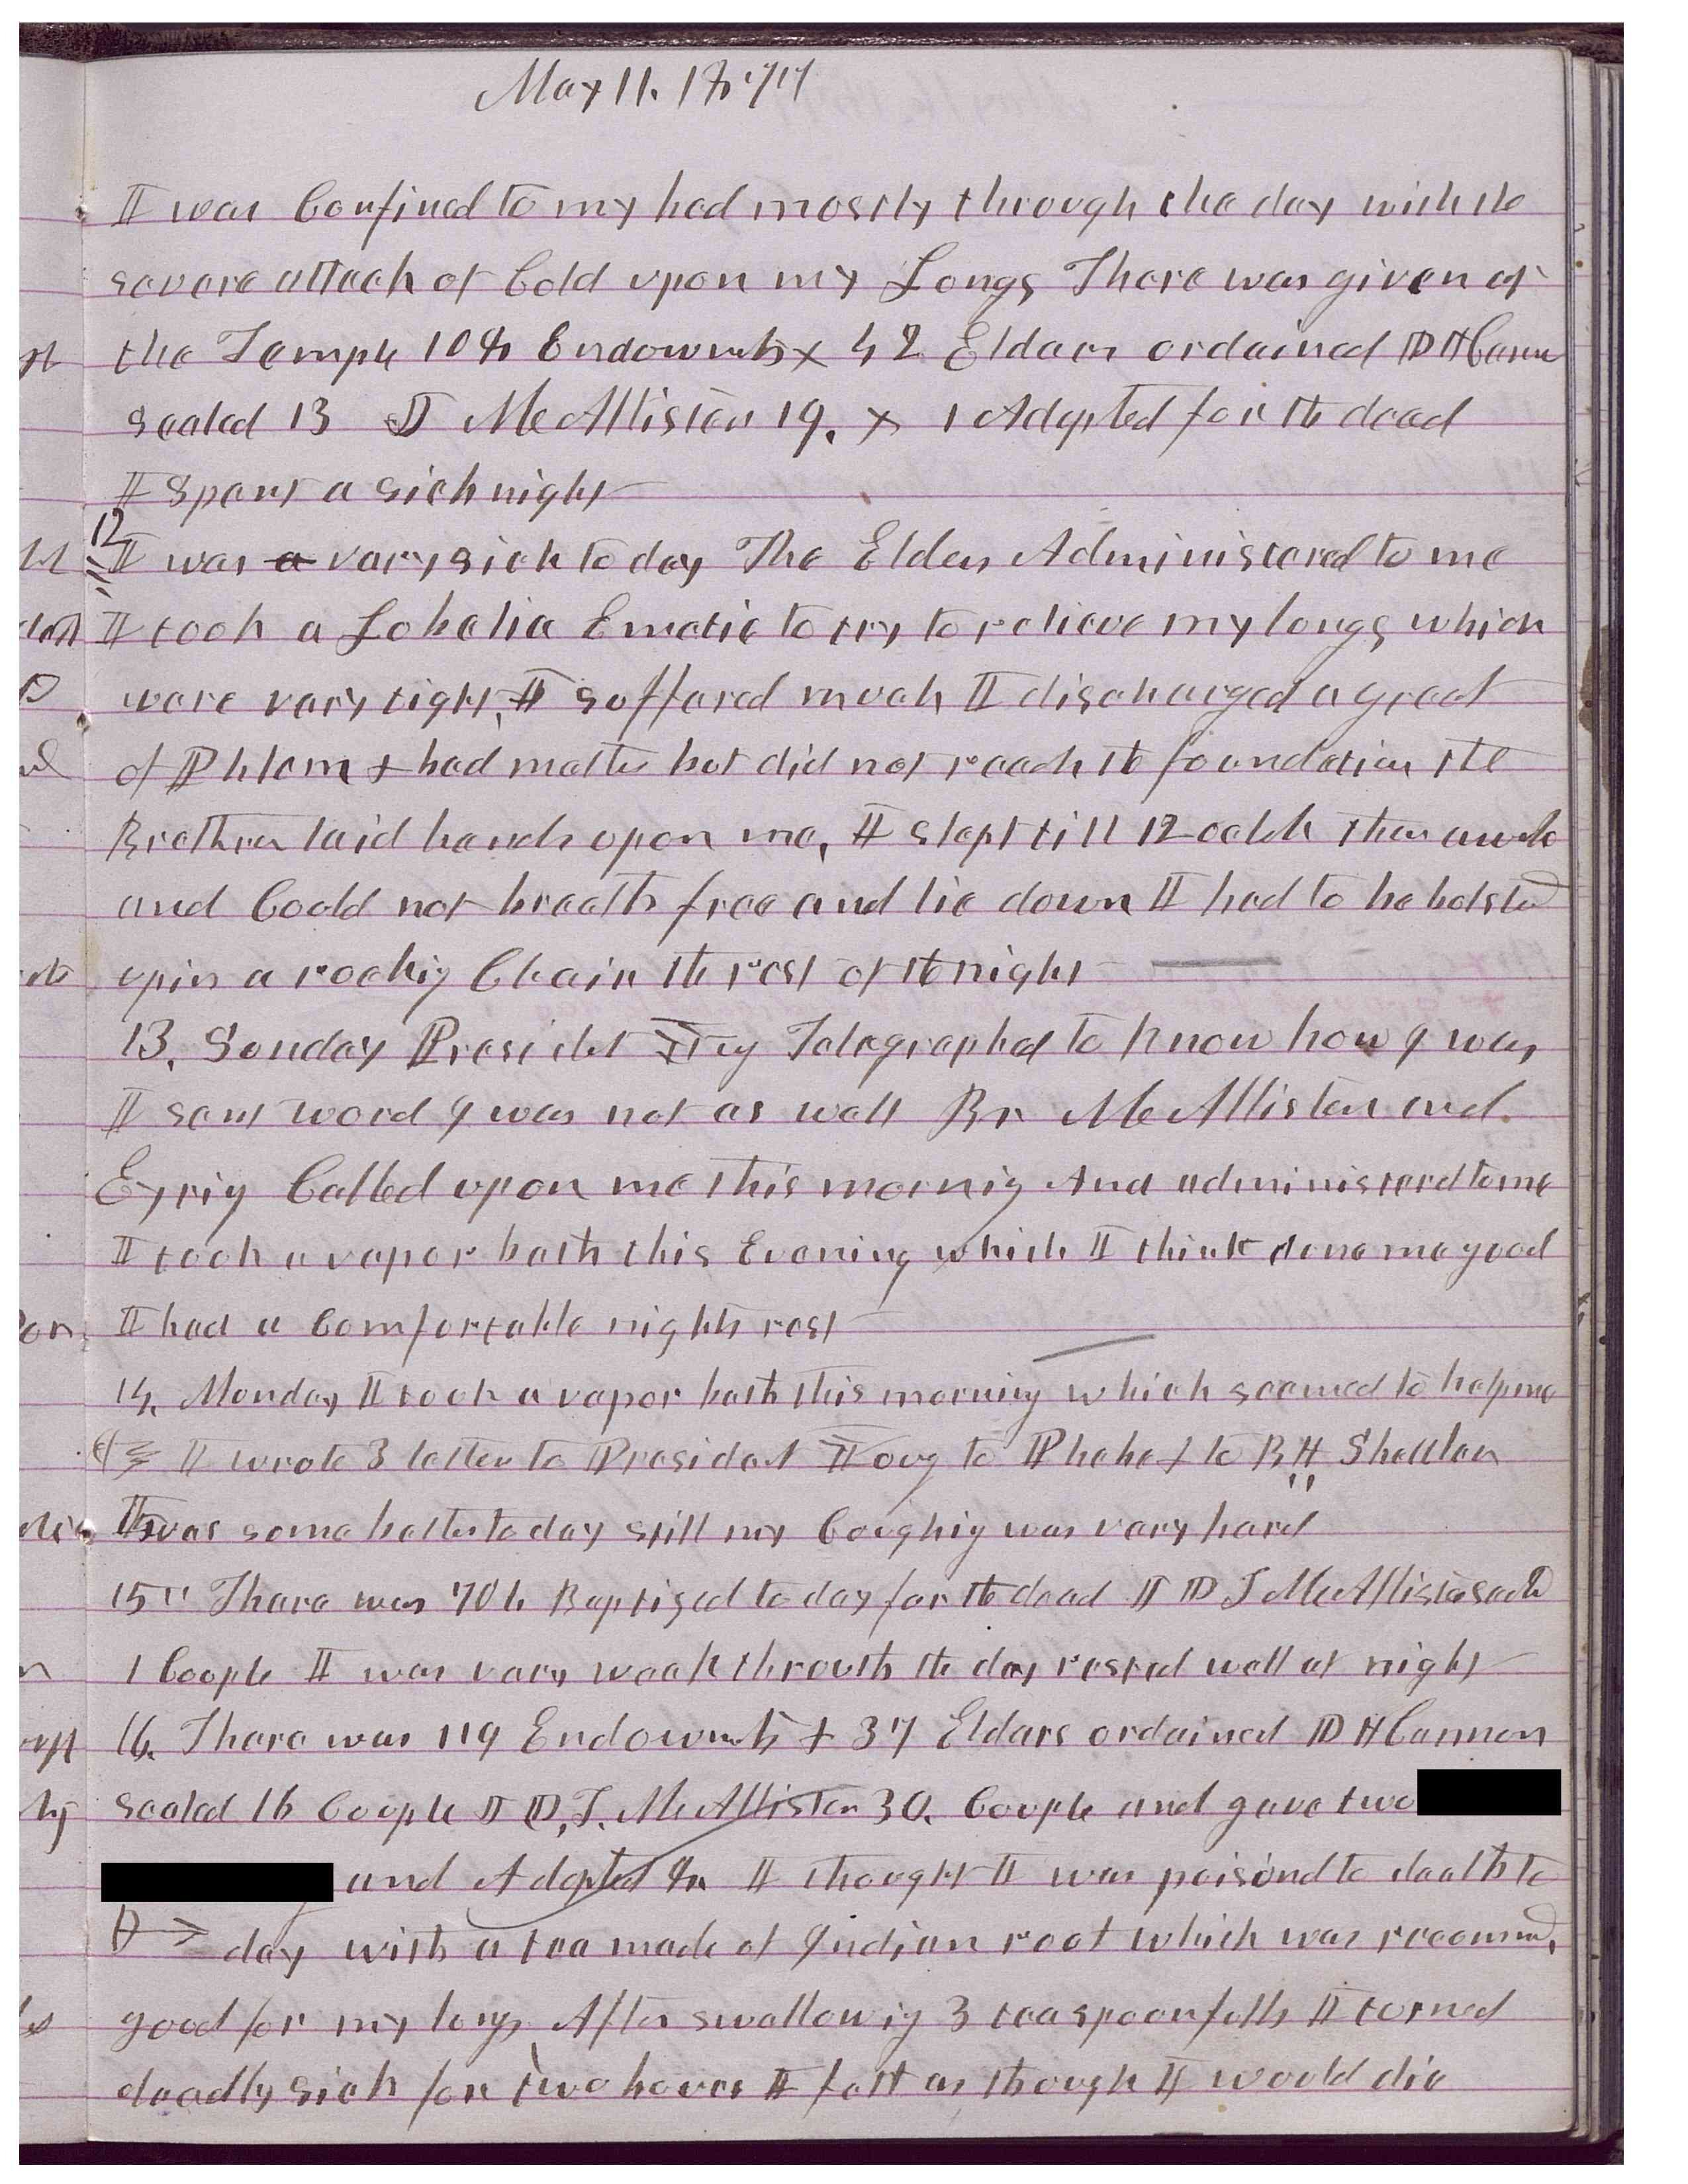 May 11. 1877
I was Confined to my bed mostly through the day with the
severe attack of Cold upon my Longs There was given at
the Temple 108 Endowmts & 42 Elders ordained D H Cann
sealed 13 J D T McAllister 19. & 1 Adopted for the dead
I spent a sick night
12 I was a vary sick to day The Elders Administered to me
I took a Lobelia Emetic to try to relieve my longs which
were vary tight. I soffered much I discharged a great
of Phlem & bad matter but did not reach the foundation the
Brethren laid hands upon me, I slept till 12 oclok then awoke
and Could not breath free and lie down I had to be bolsted
up in a rockig Chair the rest of the night
13. Sunday President Yg Telegraphed to know how I was,
I sent word I was not as well Br McAllister and
Eyrig Called upon me this mornig And administerd to me
I took a vapor bath this Evening which I think done me good
I had a Comfortable nights rest
14. Monday I took a vapor bath this morning which seemed to help me
I wrote 3 letters to President Young to Phebe & to B H
I was some better to day still my Coughig was vary hard
15" There was 706 Baptized to day for the dead J D T McAllister sealed
1 Couple I was vary weak through the day rested well at night
16. There was 119 Endowmts & 37 Elders ordained D H Cannon
sealed 16 Couple J D, T. McAllister 30. Couple and gave two
and Adopted I thought I was poisond to death to
day with a tea made of Indian root which was recommd,
good for my longs After swallowig 3 teaspoonfulls I torned
deadly sick for two hours I felt as though I would die